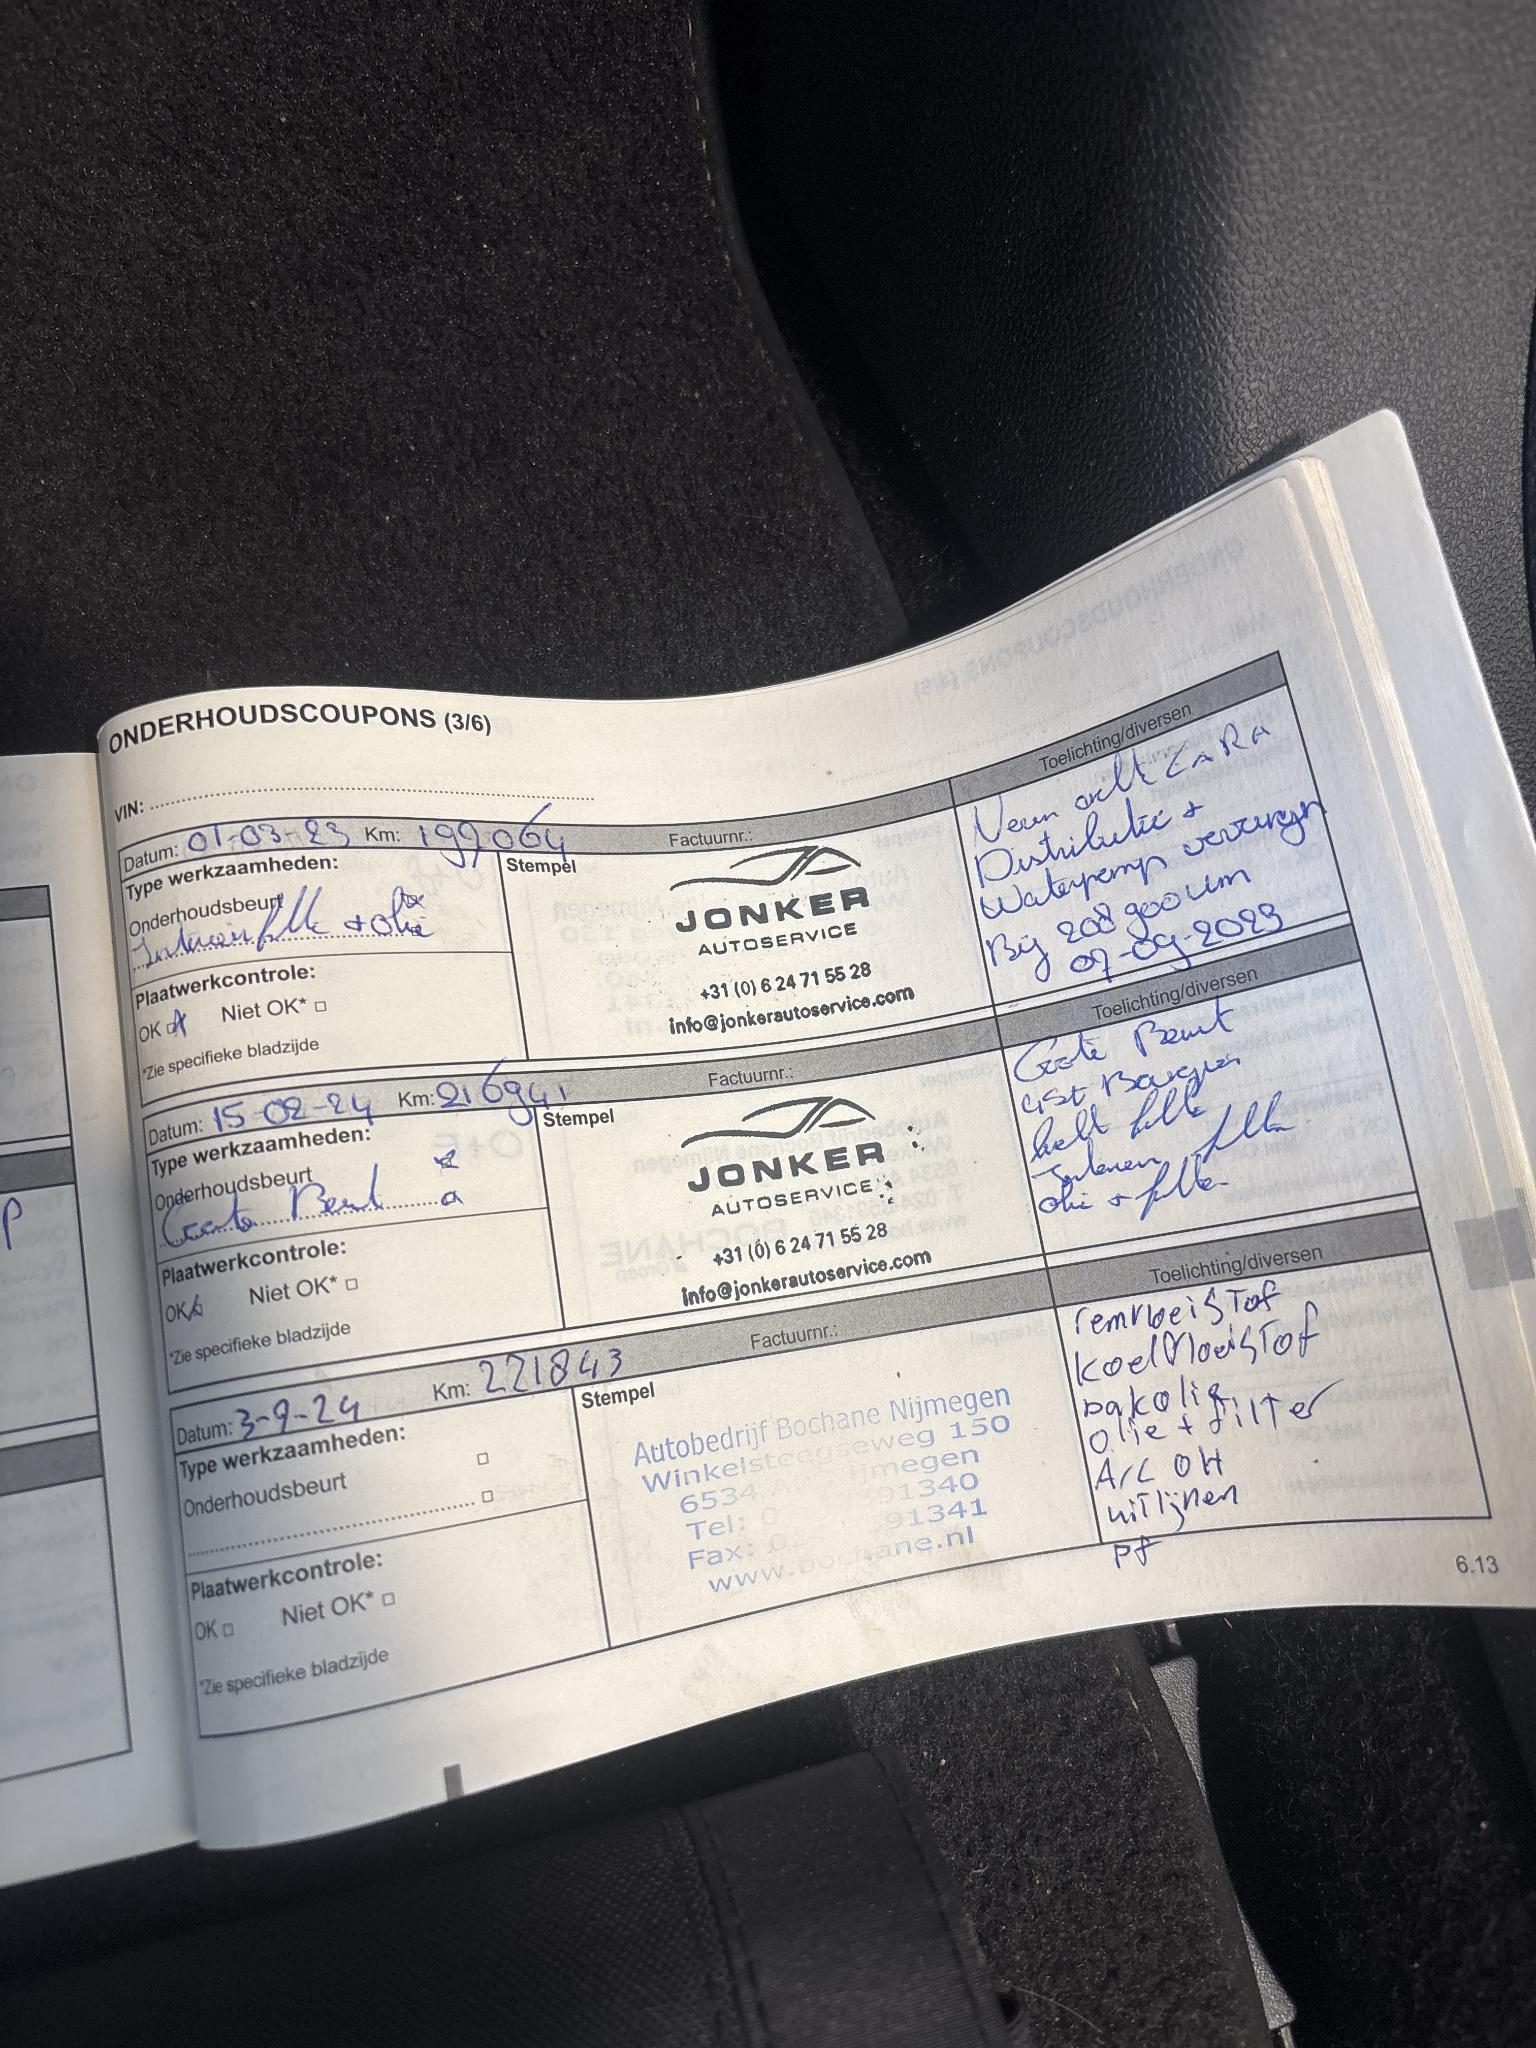 ONDERHOUDSCOUPONS (3/6)
VIN:
Datum: 01-03-23 Km: 199064 Factuurnr.: Toelichting/diversen
Type werkzaamheden:
Onderhoudsbeurt
+ olie
Plaatwerkcontrole:
OK Niet OK*
*Zie specifieke bladzijde
Stempel
JONKER
AUTOSERVICE
+31 (0) 6 24 71 55 28
info@jonkerautoservice.com
Distributie +
Waterpomp
Bij 208 900 um
07-09-2023
Datum: 15-02-24 Km: 216941 Factuurnr.: Toelichting/diversen
Type werkzaamheden:
Onderhoudsbeurt
Grote Beurt
Plaatwerkcontrole:
OK Niet OK*
*Zie specifieke bladzijde
Stempel
JONKER
AUTOSERVICE
+31 (0) 6 24 71 55 28
info@jonkerautoservice.com
Grote Beurt
olie + filter
Datum: 3-9-24 Km: 221843 Factuurnr.: Toelichting/diversen
Type werkzaamheden:
Onderhoudsbeurt
Plaatwerkcontrole:
OK Niet OK*
*Zie specifieke bladzijde
Stempel
Autobedrijf Bochane Nijmegen
Winkelsteegseweg 150
6534 Nijmegen
Tel: 91340
Fax: 91341
www.bochane.nl
remvloeistof
koelvloeistof
olie + filter
A/C OH
uitlijnen
pf
6.13